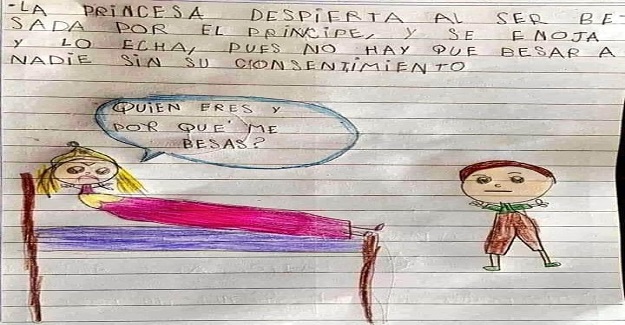 -LA PRINCESA DESPIERTA AL SER BE-
SADA POR EL PRINCIPE, Y SE ENOJA
Y LO ECHA, PUES NO HAY QUE BESAR A
NADIE SIN SU CONSENTIMIENTO
QUIEN ERES Y
POR QUE' ME
BESAS?